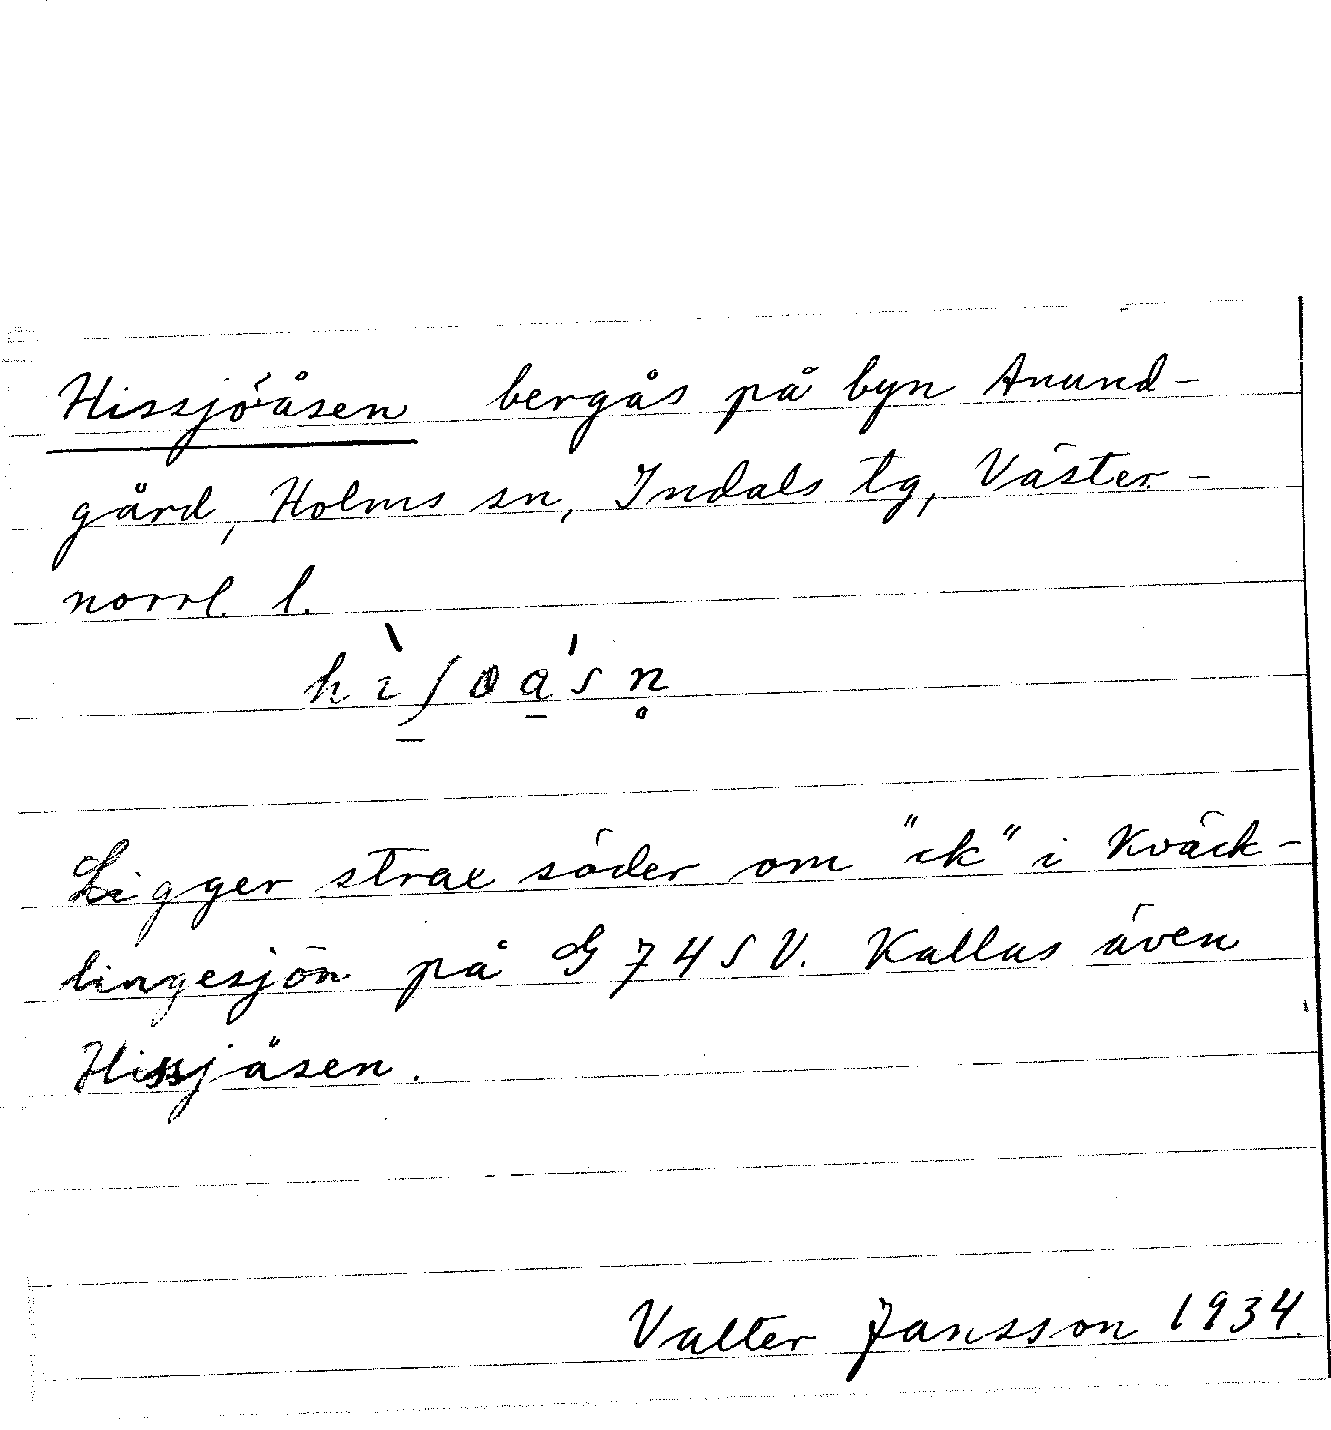 Hissjöåsen bergås på byn Anund-
gård, Holms sn, Indals tg, Väster-
norrl. l.
Ligger strax söder om "ck" i Kväck-
lingesjön på G 74 SV. Kallas även
Hissjåsen.
Valter Jansson 1934.